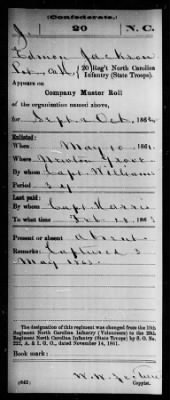 (Confederate.)
J. 20 N.C.
Edmon Jackson
Co. / 20 Reg't North Carolina
Infantry (State Troops).
Appears on
Company Muster Roll
of the organization named above,
for Sept & Oct, 186
Enlisted:
When May 10, 1861
Where Newton Grove
By whom Capt Williams
Period 3 y
Last paid:
By whom Capt Harris
To what time Feb 28, 1863
Present or absent Absent
Remarks: Captured 3
May 1863.
The designation of this regiment was changed from the 10th
Regiment North Carolina Infantry (Volunteers) to the 20th
Regiment North Carolina Infantry (State Troops) by S. O. No.
222, A. & I. G. O., dated November 14, 1861.
Book mark:
(642) Copyist.